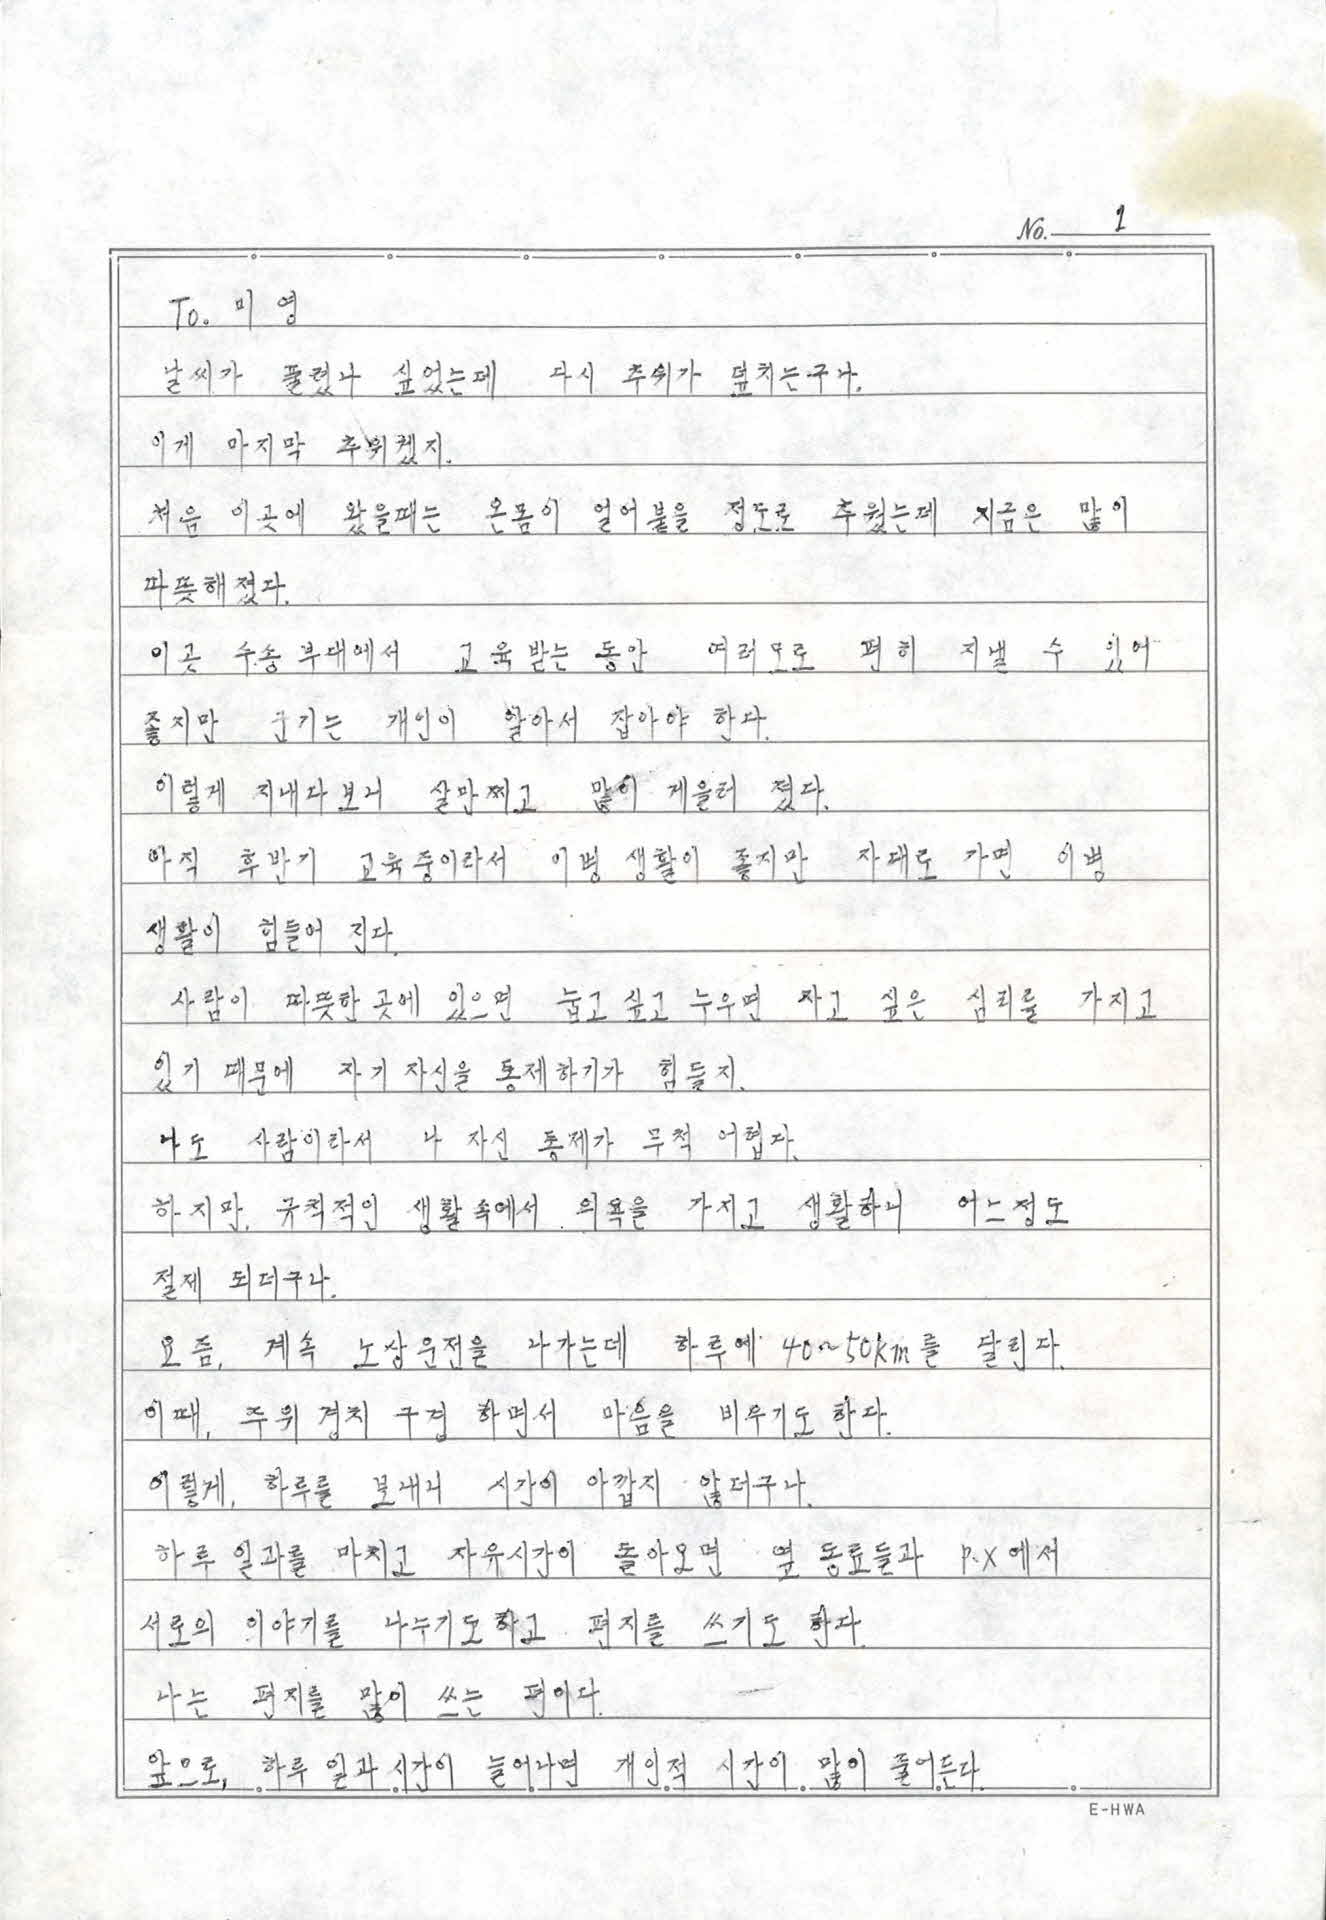 No. 1
To. 미영
날씨가 풀렸나 싶었는데 다시 추위가 덮치는구나.
이게 마지막 추위겠지.
처음 이곳에 왔을때는 온몸이 얼어붙을 정도로 추웠는데 지금은 많이
따뜻해졌다.
이곳 수송부대에서 교육받는 동안 여러모로 편히 지낼 수 있어
좋지만 군기는 개인이 알아서 잡아야 한다.
이렇게 지내다보니 살만찌고 많이 게을러 졌다.
아직 후반기 교육중이라서 이병 생활이 좋지만 자대로 가면 이병
생활이 힘들어 진다.
사람이 따뜻한 곳에 있으면 눕고 싶고 누우면 자고 싶은 심리를 가지고
있기 때문에 자기 자신을 통제하기가 힘들지.
나도 사람이라서 나 자신 통제가 무척 어렵다.
하지만, 규칙적인 생활속에서 의욕을 가지고 생활하니 어느정도
절제 되더구나.
요즘, 계속 노상운전을 나가는데 하루에 40~50km를 달린다.
이때, 주위 경치 구경 하면서 마음을 비우기도 한다.
이렇게, 하루를 보내니 시간이 아깝지 않더구나.
하루 일과를 마치고 자유시간이 돌아오면 옆 동료들과 P.X에서
서로의 이야기를 나누기도하고 편지를 쓰기도 한다.
나는 편지를 많이 쓰는 편이다.
앞으로, 하루 일과시간이 늘어나면 개인적 시간이 많이 줄어든다.
E-HWA